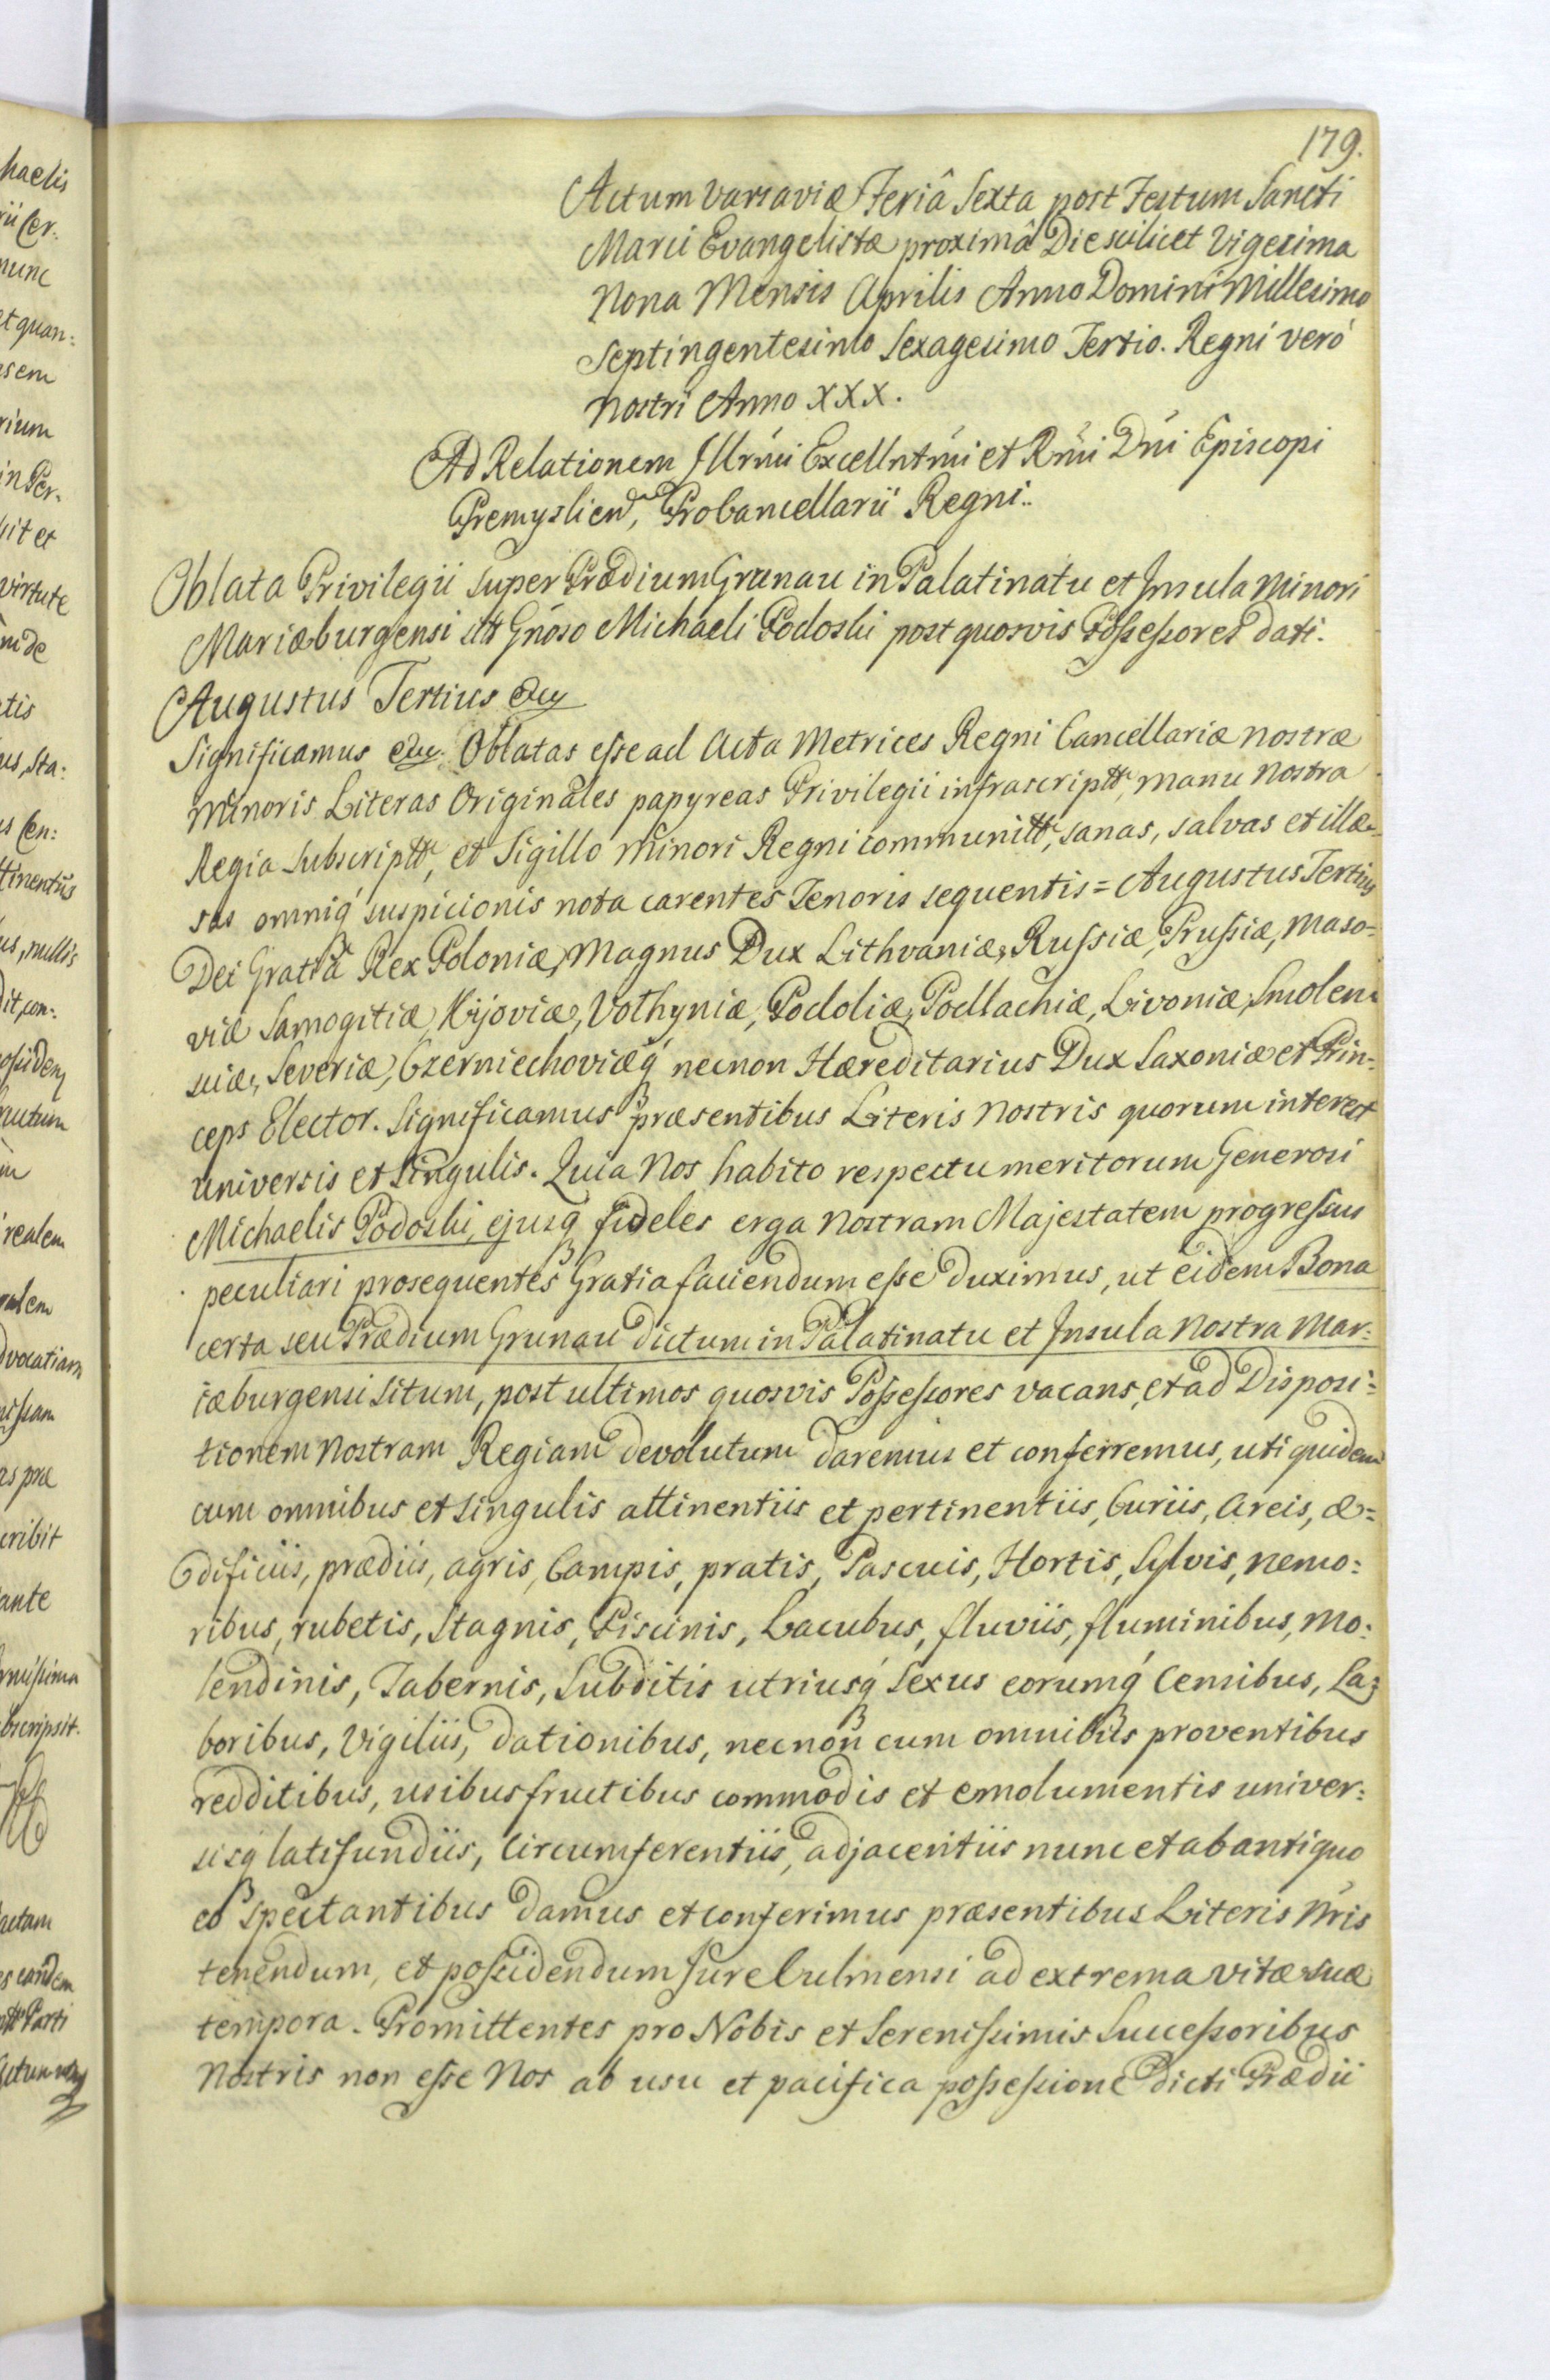 179.
Actum Varsaviæ Feriâ Sexta post Festum Sancti
Marci Evangelistæ proximâ Die scilicet Vigesima
Nona Mensis Aprilis Anno Domini Millesimo
Septingentesimo Sexagesimo Tertio. Regni verò
Nostri Anno XXX.
Ad Relationem Illrmi Excellntmi et Rmi Dni Episcopi
Premyslien, ProCancellarii Regni.
Oblata Privilegii super Prædium Grunau in Palatinatu et Insula Minori
Mariæburgensi Gnoso Michaeli Podoski post quosvis Possessores dati.
Augustus Tertius &c
Significamus &c. Oblatas esse ad Acta Metrices Regni Cancellariæ nostræ
Minoris Literas Originales papyreas Privilegii infrascriptt, manu Nostra
Regia subscriptt, et Sigillo Minori Regni communitt, sanas, salvas et illæ-
sas omniq́ suspicionis nota carentes Tenoris sequentis = Augustus Tertius
Dei Gratia Rex Poloniæ, Magnus Dux Lithvaniæ, Russiæ, Prussiæ, Maso=
viæ Samogitiæ, Kijoviæ, Volhyniæ, Podoliæ, Podlachiæ, Livoniæ, Smolen-
sciæ, Severiæ, Czerniechoviæq́ necnon Hæreditarius Dux Saxoniæ et Prin=
ceps Elector. Significamus præsentibus Literis Nostris quorum interest
universis et singulis. Quia Nos habito respectu meritorum Generosi
Michaelis Podoski, ejusq́ fideles erga Nostram Majestatem progressus
peculiari prosequentes Gratia faciendum esse duximus, ut eidem Bona
certa seu Prædium Grunau dictum in Palatinatu et Insula Nostra Mar:
iæburgensi situm, post ultimos quosvis Possessores vacans, et ad Disposi=
tionem Nostram Regiam devolutum daremus et conferremus, uti quidem
cum omnibus et singulis attinentiis et pertinentiis, Curiis, Areis, æ=
dificiis, prædiis, agris, Campis, pratis, Pascuis, Hortis, Sylvis, nemo:
ribus, rubetis, Stagnis, Piscinis, Lacubus, fluviis, fluminibus, Mo:
lendinis, Tabernis, Subditis utriusq́ Sexus eorumq́ Censibus, La=
boribus, Vigiliis, dationibus, necnon cum omnibus proventibus
redditibus, usibusfructibus commodis et emolumentis univer:
sisq́ latifundiis, Circumferentiis, adjacentiis nunc et ab antiquo
eò spectantibus damus et conferimus præsentibus Literis Nris
tenendum, et possidendum Jure Culmensi ad extrema vitæ suæ
tempora. Promittentes pro Nobis et Serenissimis Successoribus
Nostris non esse Nos ab usu et pacifica possessione dicti Prædii